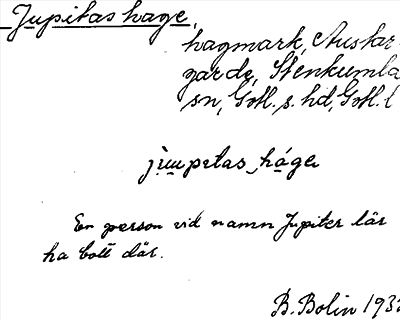 Jupitas hage,
hagmark, Auskar-
garde, Stenkumla
sn, Gotl. s. hd, Gotl. l
jùupitas hága
En person vid namn Jupiter lär
ha bott där.
B. Bolin 193